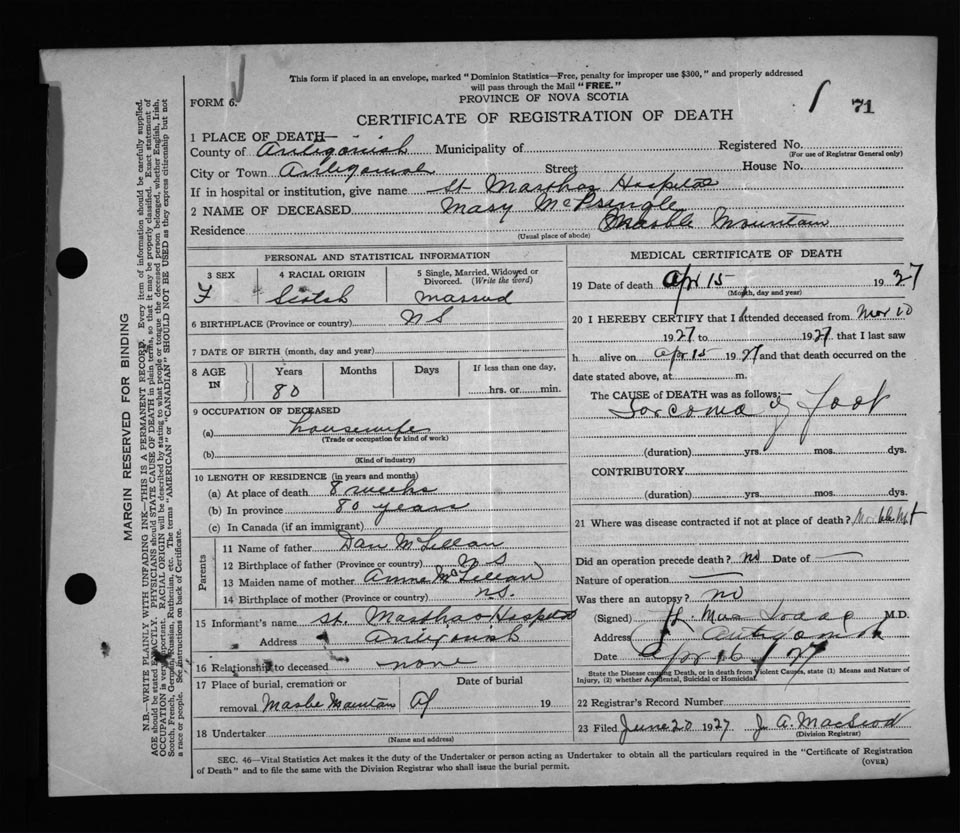 This form if placed in an envelope, marked "Dominion Statistics—Free, penalty for improper use $300," and properly addressed
will pass through the Mail "FREE."
FORM 6.
PROVINCE OF NOVA SCOTIA
71
CERTIFICATE OF REGISTRATION OF DEATH
1 PLACE OF DEATH—
County of Antigonish Municipality of Registered No.
(For use of Registrar General only)
City or Town Antigonish Street House No.
If in hospital or institution, give name St Marthas Hospital
2 NAME OF DECEASED Mary McPringle
Residence Marble Mountain
(Usual place of abode)
PERSONAL AND STATISTICAL INFORMATION
3 SEX 4 RACIAL ORIGIN 5 Single, Married, Widowed or Divorced. (Write the word)
F Scotch Married
6 BIRTHPLACE (Province or country) N S
7 DATE OF BIRTH (month, day and year)
8 AGE IN Years Months Days If less than one day,
80 hrs. or min.
9 OCCUPATION OF DECEASED
(a) housewife
(Trade or occupation or kind of work)
(b)
(Kind of industry)
10 LENGTH OF RESIDENCE (in years and months)
(a) At place of death 8 weeks
(b) In province 80 years
(c) In Canada (if an immigrant)
Parents
11 Name of father Dan McLellan
12 Birthplace of father (Province or country) N S
13 Maiden name of mother Anna McLellan
14 Birthplace of mother (Province or country) N S.
15 Informant's name St. Marthas Hospital
Address Antigonish
16 Relationship to deceased none
17 Place of burial, cremation or Date of burial
removal Marble Mountain Ap 19
18 Undertaker
(Name and address)
MEDICAL CERTIFICATE OF DEATH
19 Date of death Apr 15 1927
(Month, day and year)
20 I HEREBY CERTIFY that I attended deceased from Mar 10
1927 to 1927 that I last saw
h alive on Apr 15 1927 and that death occurred on the
date stated above, at m.
The CAUSE of DEATH was as follows:—
Sarcoma of foot
(duration) yrs. mos. dys.
CONTRIBUTORY
(duration) yrs. mos. dys.
21 Where was disease contracted if not at place of death? Marble Mt
Did an operation precede death? no Date of —
Nature of operation —
Was there an autopsy? no
(Signed) M.D.
Address Antigonish
Date Apr 16 / 27
State the Disease causing Death, or in death from Violent Causes, state (1) Means and Nature of
Injury, (2) whether Accidental, Suicidal or Homicidal.
22 Registrar's Record Number
23 Filed June 20 1927 J. A. MacLeod
(Division Registrar)
SEC. 46—Vital Statistics Act makes it the duty of the Undertaker or person acting as Undertaker to obtain all the particulars required in the "Certificate of Registration
of Death" and to file the same with the Division Registrar who shall issue the burial permit.
(OVER)
MARGIN RESERVED FOR BINDING
N.B.—WRITE PLAINLY WITH UNFADING INK—THIS IS A PERMANENT RECORD. Every item of information should be carefully supplied.
AGE should be stated EXACTLY. PHYSICIANS should STATE CAUSE OF DEATH in plain terms, so that it may be properly classified. Exact statement of
OCCUPATION is very important. RACIAL ORIGIN will be described by stating to what people or tongue the deceased person belonged, whether English, Irish,
Scotch, French, German, Russian, Ruthenian, etc. The terms "AMERICAN" or "CANADIAN" SHOULD NOT BE USED as they express citizenship but not
a race or people. See instructions on back of Certificate.